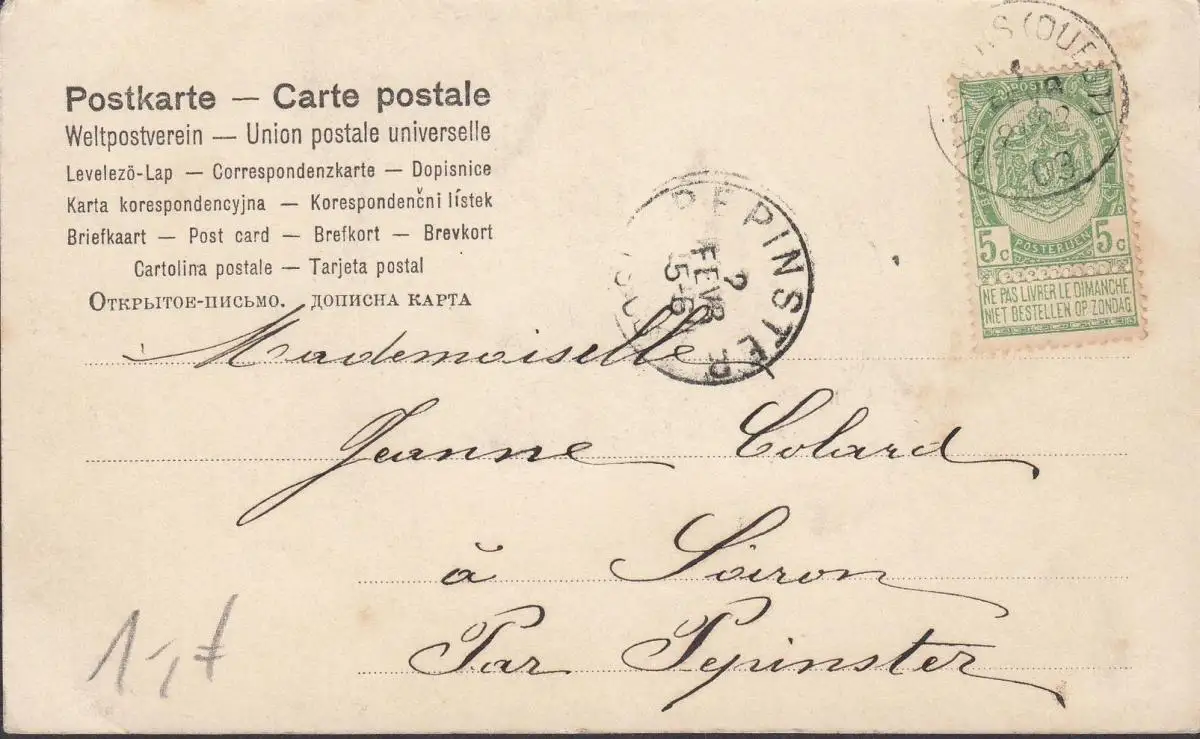 Postkarte — Carte postale
Weltpostverein — Union postale universelle
Levelezõ-Lap — Correspondenzkarte — Dopisnice
Karta korespondencyjna — Korespondenčni lístek
Briefkaart — Post card — Brefkort — Brevkort
Cartolina postale — Tarjeta postal
Открытое-письмо. дописна карта
(OUEST)
03
5c POSTERIJEN 5c
NE PAS LIVRER LE DIMANCHE
NIET BESTELLEN OP ZONDAG
PEPINSTER
2
FEVR
5-6
Mademoiselle
Jeanne Colard
à Soiron
Par Pepinster